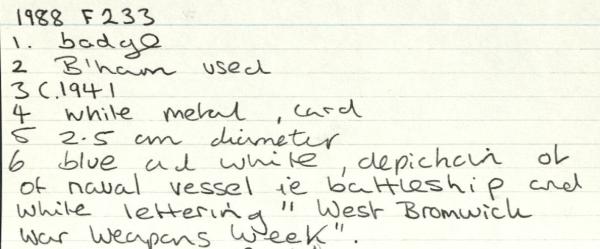 1988 F 233
1. badge
2 B'ham used
3 C.1941
4 white metal, card
5 2.5 cm diameter
6 blue ad white, depichain of
of naval vessel ie battleship and
white lettering "West Bromwich
War Weapons Week".